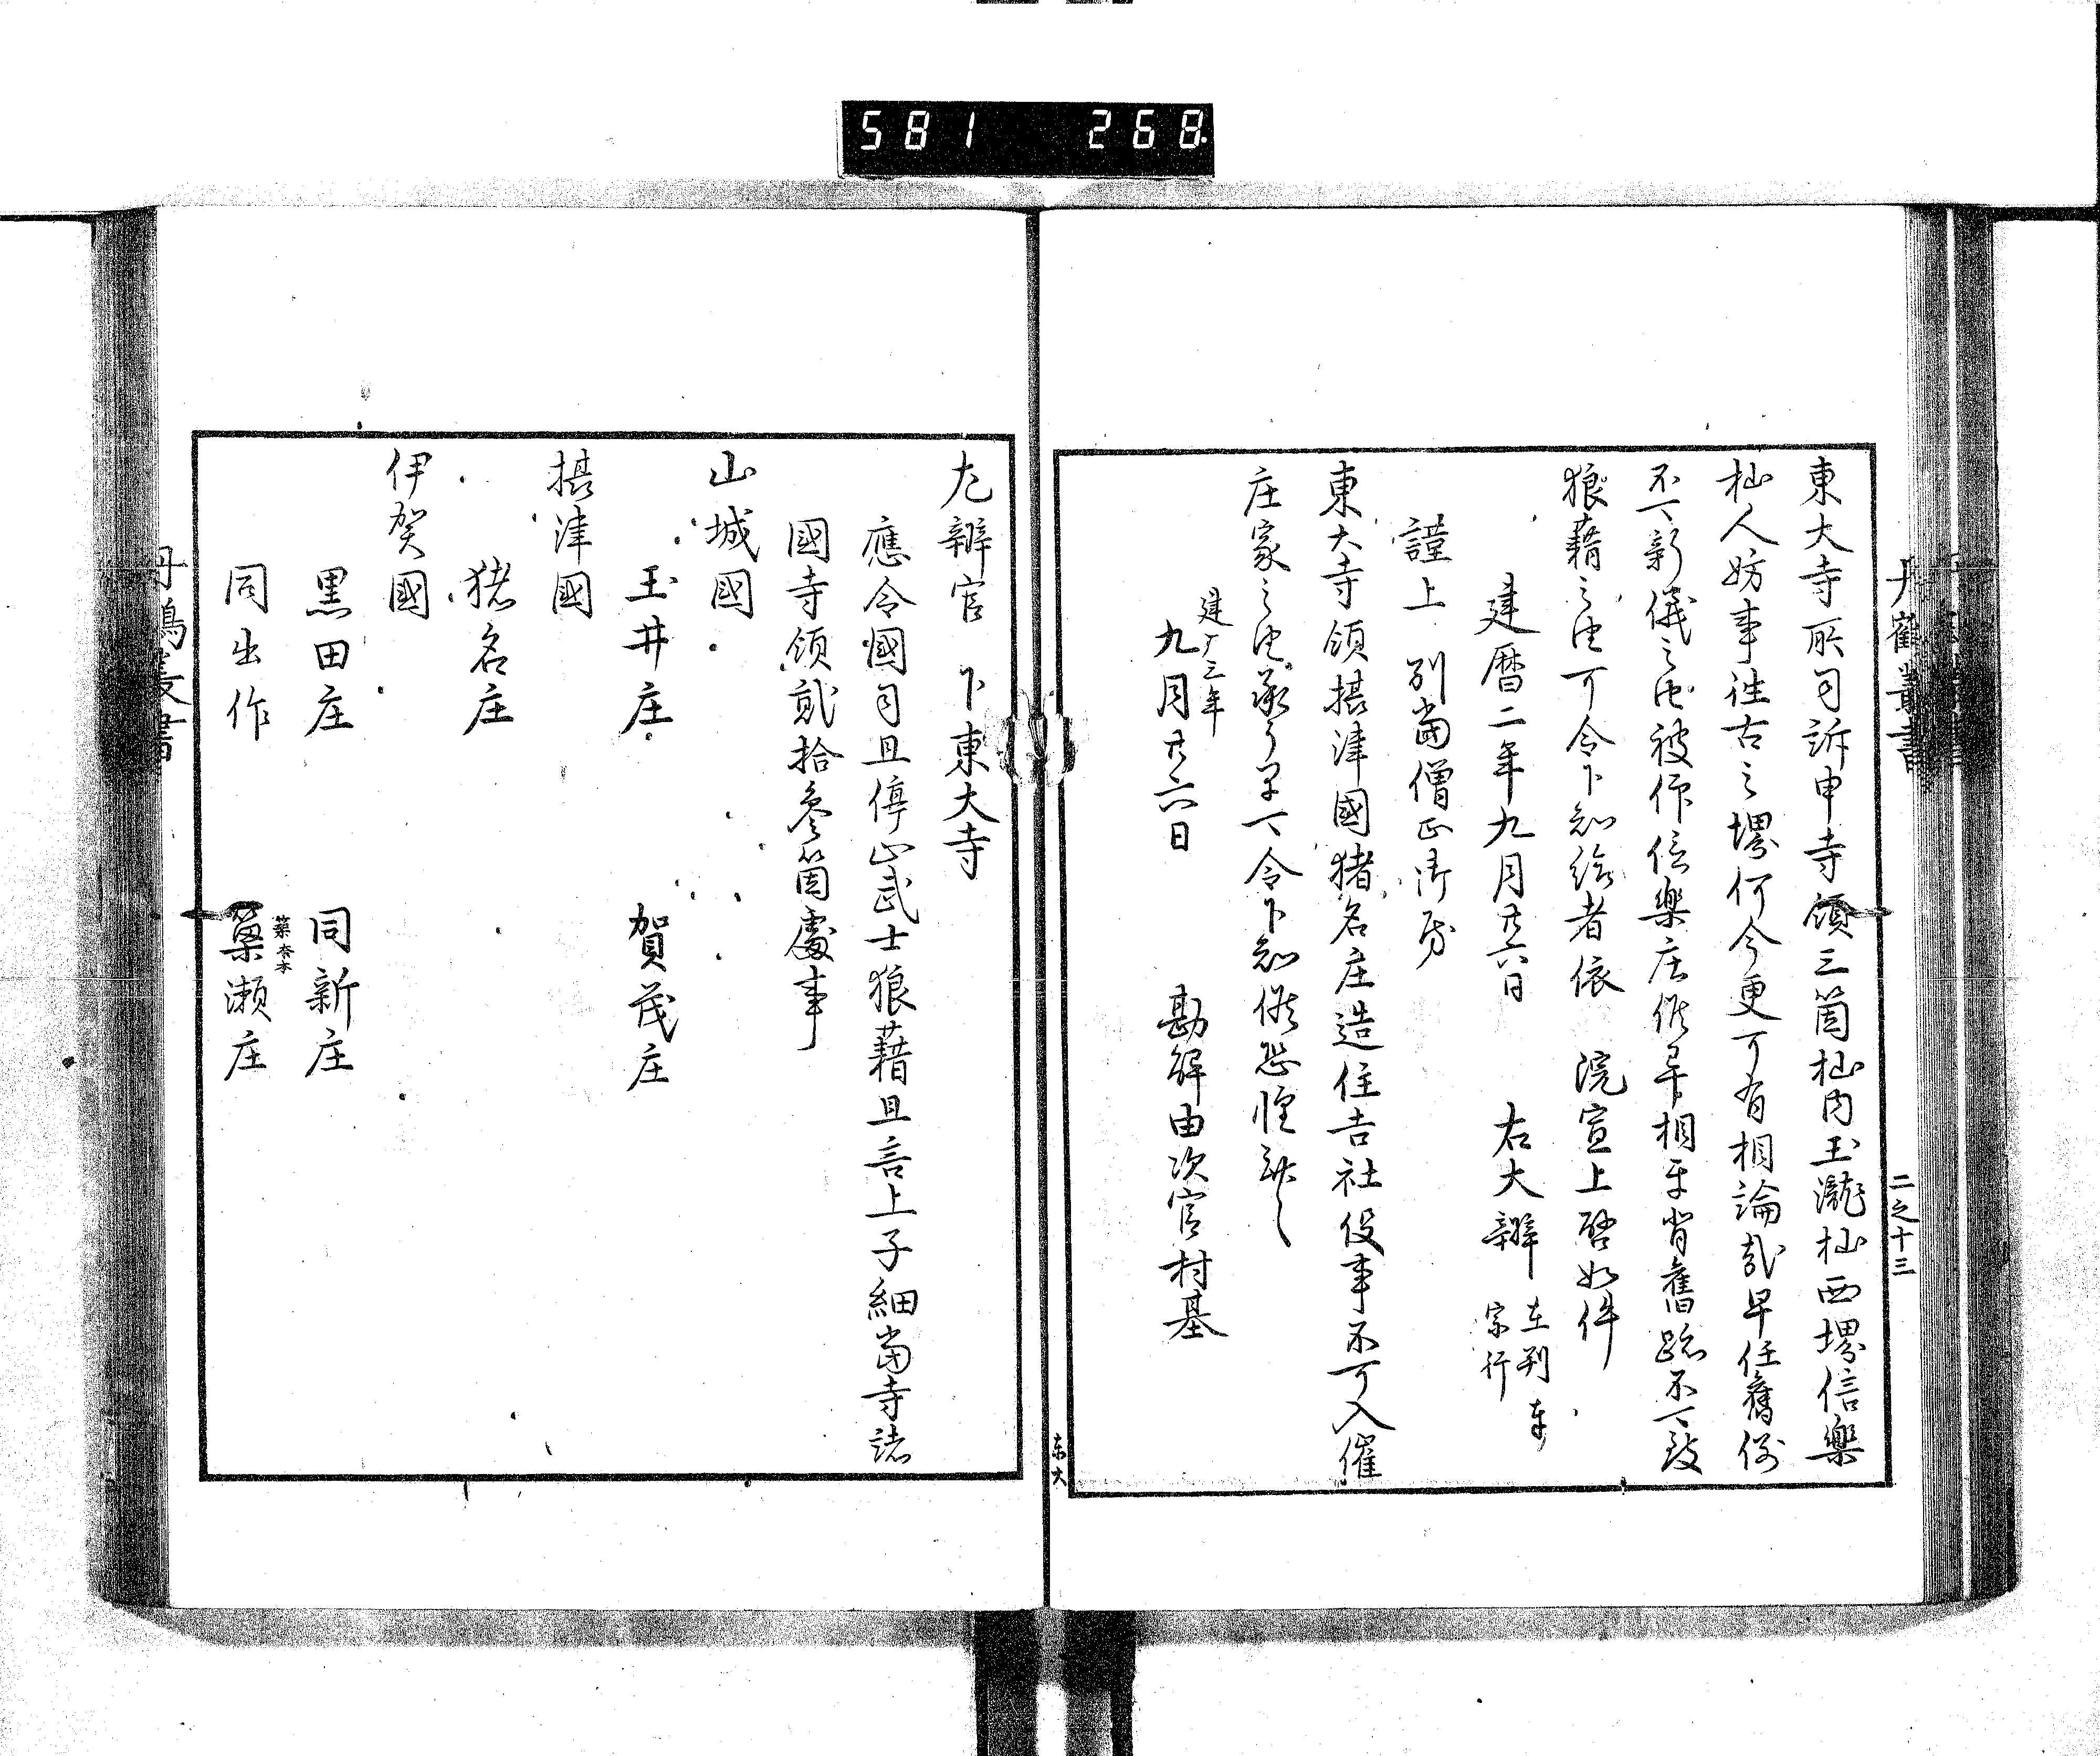 581 268
丹鶴叢書
二之十三
東大寺所司訴申寺領三箇杣内玉瀧杣西堺信樂
杣人妨事往古之堺何今更可有相論哉早任舊例
不可新儀之由被仰信樂庄候畢相互背舊跡不可致
狼藉之由可令下知給者依 院宣上啓如件
建暦二年九月廿六日 右大辨 在判
宗行
謹上 別當僧正御房
東大寺領摂津國猪名庄造住吉社役事不可入催
庄家之由承了早可令下知候恐惶謹言
建广三年
九月廿六日 勘解由次官村基
东大
左辨官 下東大寺
應令國司且停止武士狼藉且言上子細當寺諸
國寺領貳拾參箇處事
山城國
玉井庄 賀茂庄
摂津國
猪名庄
伊賀國
黒田庄 同新庄
同出作 簗瀬庄
丹鶴叢書